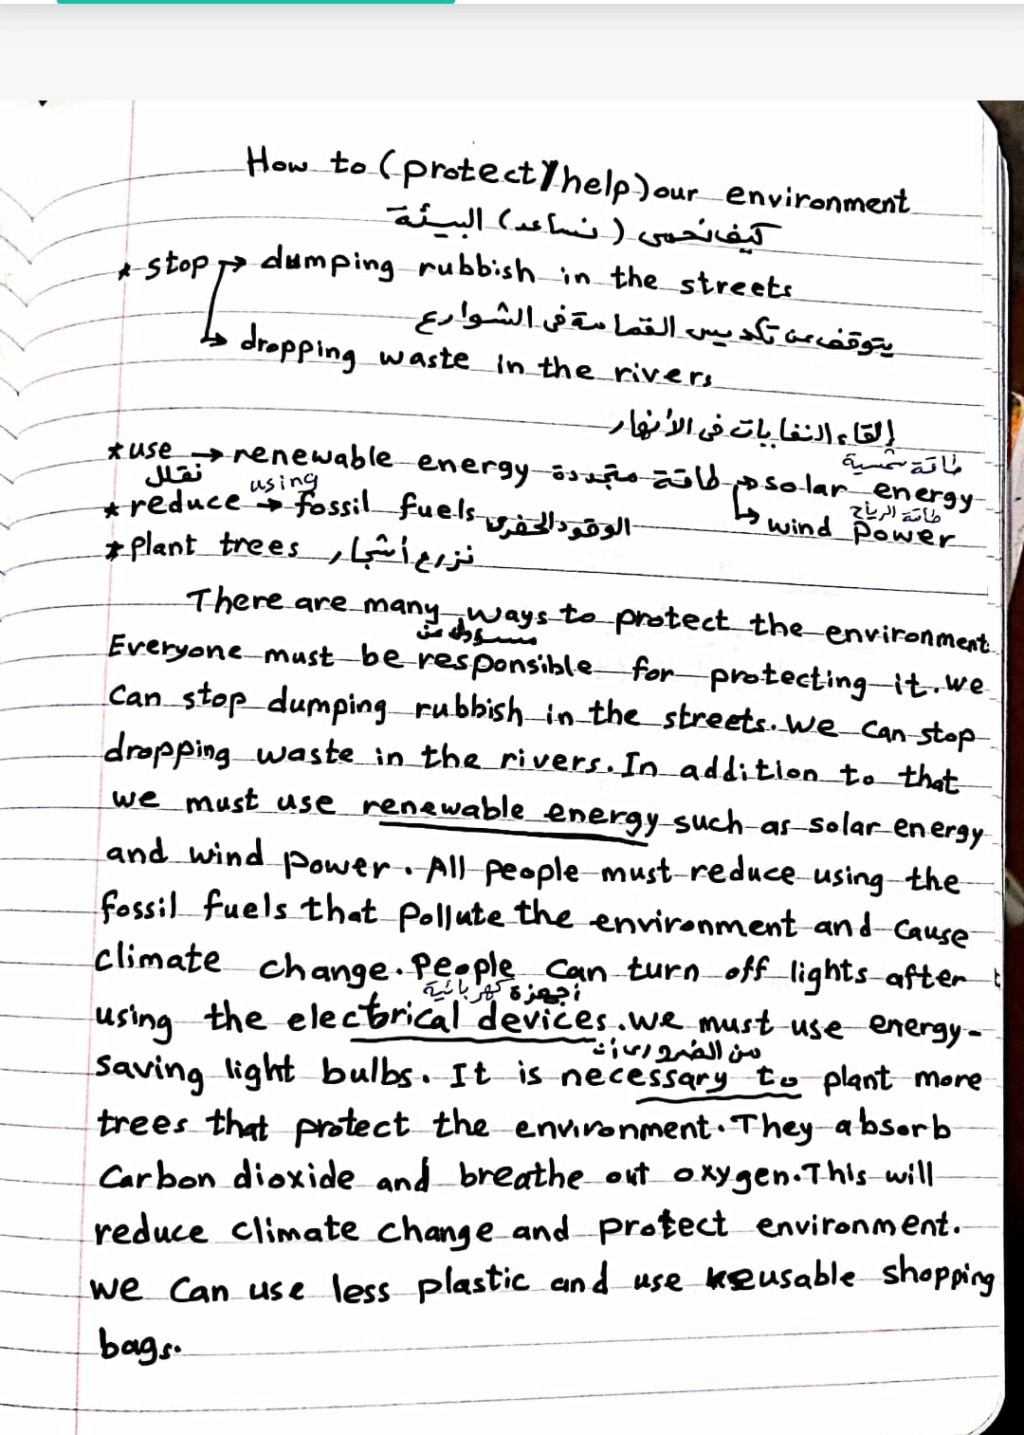 How to (protect/help) our environment
كيف نحمى (نساعد) البيئة
* stop → dumping rubbish in the streets
يتوقف عن تكديس القمامة فى الشوارع
↳ dropping waste in the rivers
إلقاء النفايات فى الأنهار
* use → renewable energy طاقة متجددة → solar energy طاقة شمسية
↳ wind power طاقة الرياح
* reduce نقلل → using fossil fuels الوقود الحفرى
* plant trees نزرع أشجار
There are many ways to protect the environment
مسئول عن
Everyone must be responsible for protecting it. we
can stop dumping rubbish in the streets. we can stop
dropping waste in the rivers. In addition to that
we must use renewable energy such as solar energy
and wind power. All people must reduce using the
fossil fuels that pollute the environment and cause
climate change. People can turn off lights after
أجهزة كهربائية
using the electrical devices. we must use energy-
من الضرورى أن
saving light bulbs. It is necessary to plant more
trees that protect the environment. They absorb
carbon dioxide and breathe out oxygen. This will
reduce climate change and protect environment.
we can use less plastic and use reusable shopping
bags.